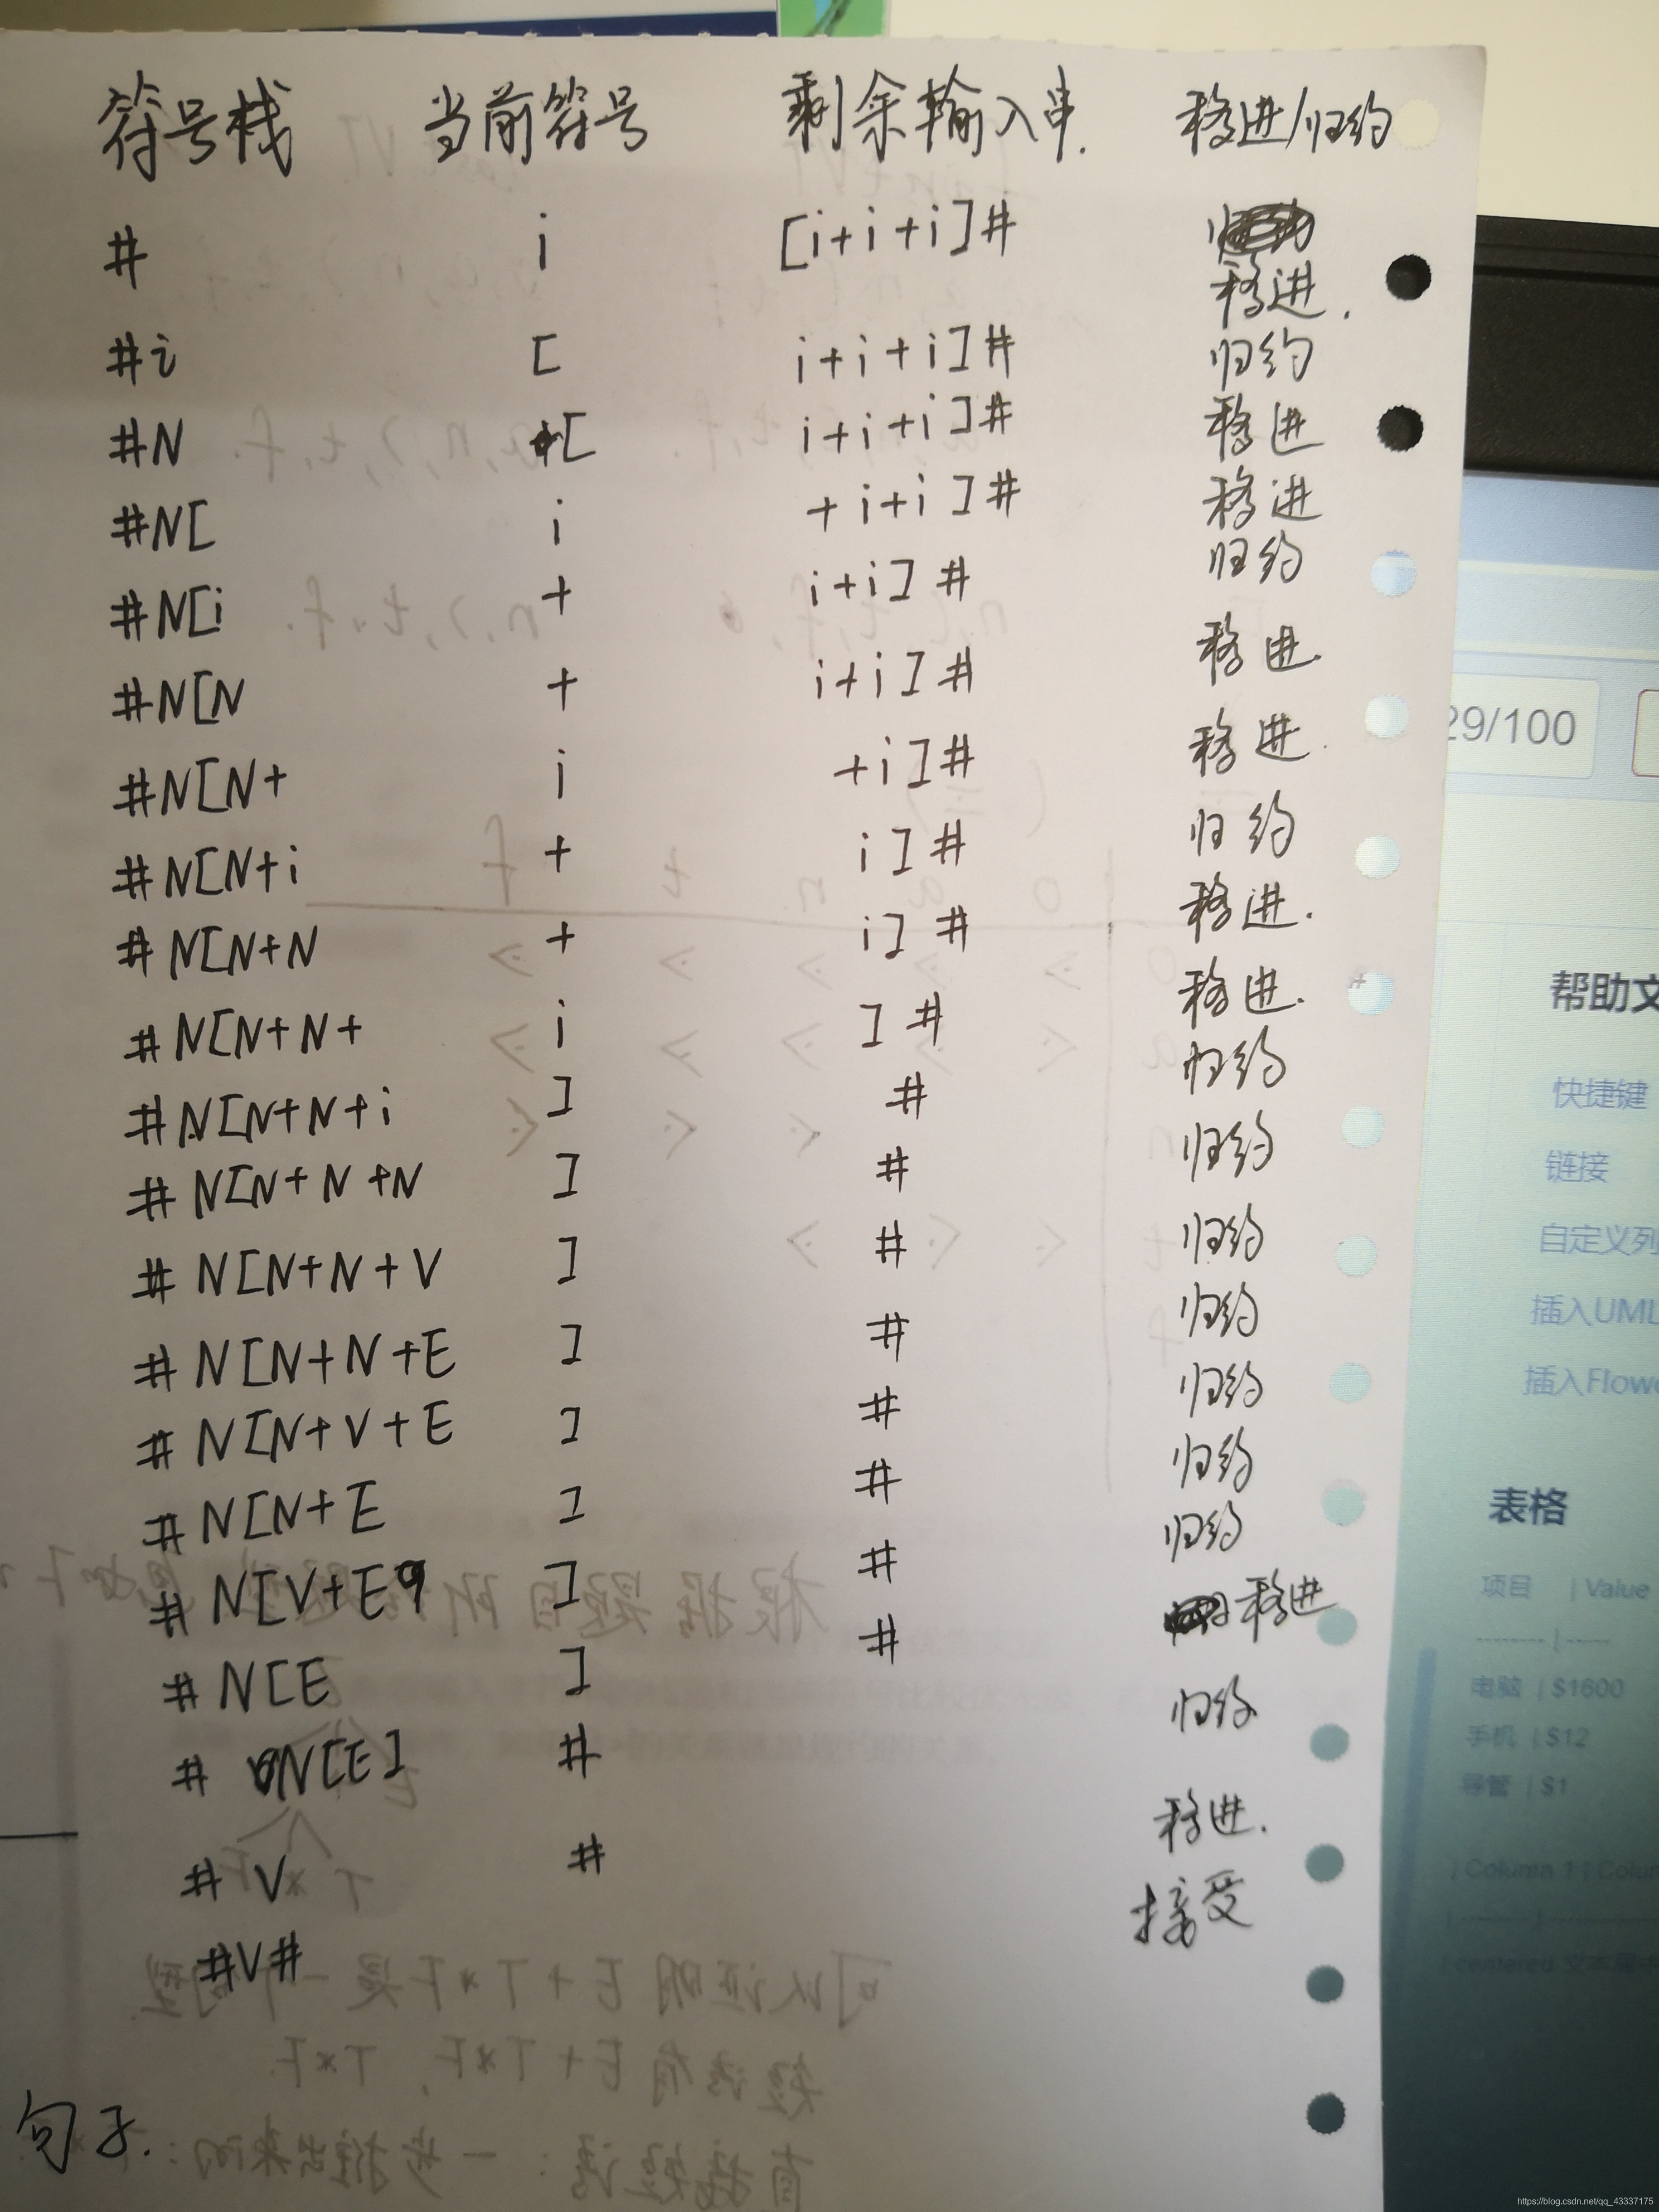 符号栈 当前符号 剩余输入串. 移进/归约
# i [i+i+i]# 移进.
#i [ i+i+i]# 归约
#N [ i+i+i]# 移进
#N[ i +i+i]# 移进
#N[i + i+i]# 归约
#N[N + i+i]# 移进.
#N[N+ i +i]# 移进.
#N[N+i + i]# 归约
#N[N+N + i]# 移进.
#N[N+N+ i ]# 移进.
#N[N+N+i ] # 归约
#N[N+N+N ] # 归约
#N[N+N+V ] # 归约
#N[N+N+E ] # 归约
#N[N+V+E ] # 归约
#N[N+E ] # 归约
#N[V+E ] # 归约
#N[E ] # 移进
#N[E] # 归约
#V # 移进.
#V# 接受
句子.
29/100
帮助文
快捷键
链接
自定义列
插入UML
插入Flow
表格
项目 | Value
-------- | -----
电脑 | $1600
手机 | $12
导管 | $1
| Column 1 | Colum
centered 文本居中
根据题目所
可以证明E+T*F是一个句型
短语有E+T*F, T*F
直接短语：一步推出来的：
https://blog.csdn.net/qq_43337175